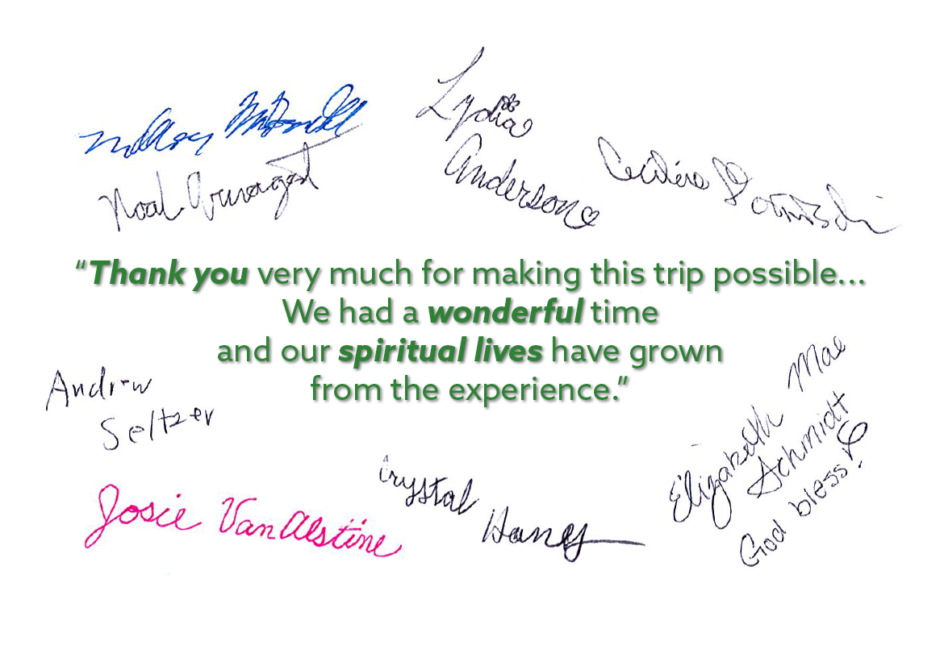 Lydia
Anderson
"Thank you very much for making this trip possible...
We had a wonderful time
and our spiritual lives have grown
from the experience."
Andrew
Seltzer
Elizabeth Mae
Schmidt
God bless!
Crystal
Haney
Josie VanAlstine